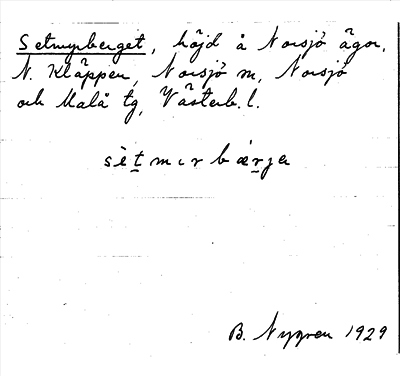 Setmyrberget, höjd å Norsjö ägor,
N. Kläppen, Norsjö sn, Norsjö
och Malå tg, Västerb. l.
sètmırbærjə
B. Nygren 1929